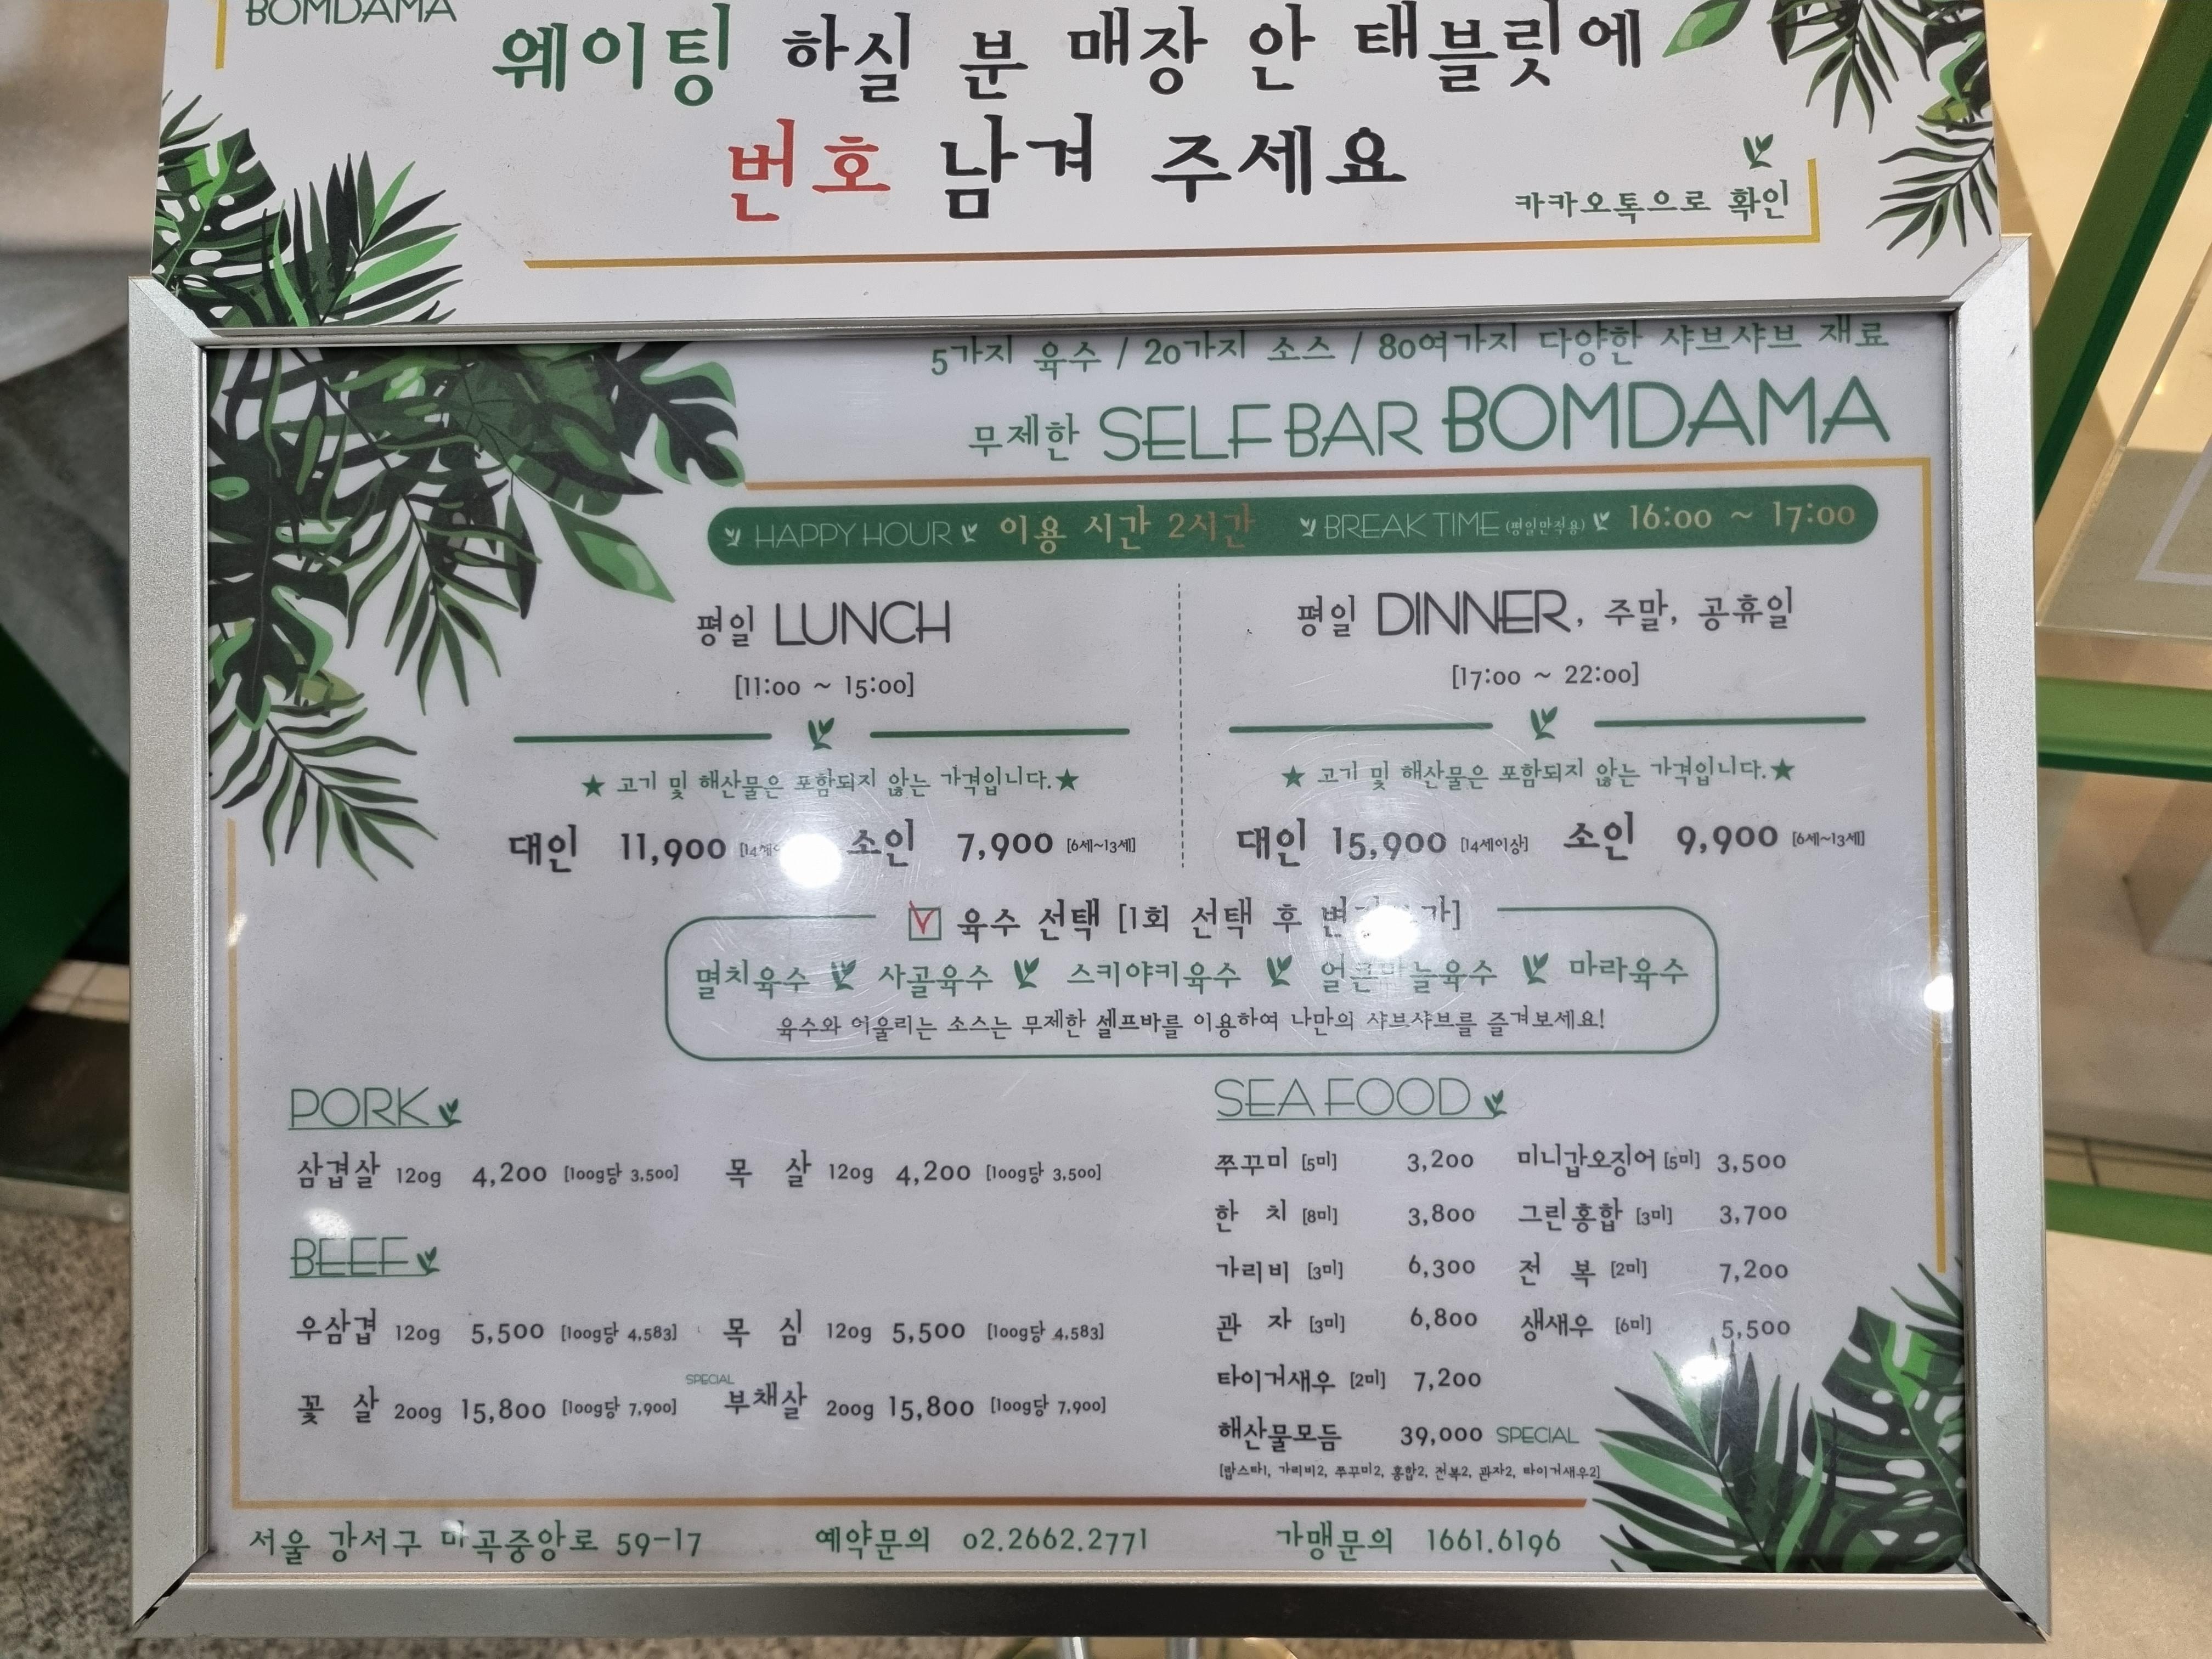 BOMDAMA
웨이팅 하실 분 매장 안 태블릿에
번호 남겨 주세요
카카오톡으로 확인
5가지 육수 / 20가지 소스 / 80여가지 다양한 샤브샤브 재료
무제한 SELF BAR BOMDAMA
HAPPY HOUR 이용 시간 2시간 BREAK TIME (평일만적용) 16:00 ~ 17:00
평일 LUNCH
[11:00 ~ 15:00]
★ 고기 및 해산물은 포함되지 않는 가격입니다.★
대인 11,900 소인 7,900 [6세~13세]
평일 DINNER, 주말, 공휴일
[17:00 ~ 22:00]
★ 고기 및 해산물은 포함되지 않는 가격입니다.★
대인 15,900 [14세이상] 소인 9,900 [6세~13세]
육수 선택 [1회 선택 후
멸치육수 사골육수 스키야키육수 얼큰마늘육수 마라육수
육수와 어울리는 소스는 무제한 셀프바를 이용하여 나만의 샤브샤브를 즐겨보세요!
PORK
삼겹살 120g 4,200 [100g당 3,500] 목 살 120g 4,200 [100g당 3,500]
BEEF
우삼겹 120g 5,500 [100g당 4,583] 목 심 120g 5,500 [100g당 4,583]
SPECIAL
꽃 살 200g 15,800 [100g당 7,900] 부채살 200g 15,800 [100g당 7,900]
SEA FOOD
쭈꾸미 [5미] 3,200 미니갑오징어 [5미] 3,500
한 치 [8미] 3,800 그린홍합 [3미] 3,700
가리비 [3미] 6,300 전 복 [2미] 7,200
관 자 [3미] 6,800 생새우 [6미] 5,500
타이거새우 [2미] 7,200
해산물모듬 39,000 SPECIAL
[랍스타1, 가리비2, 쭈꾸미2, 홍합2, 전복2, 관자2, 타이거새우2]
서울 강서구 마곡중앙로 59-17 예약문의 02.2662.2771 가맹문의 1661.6196